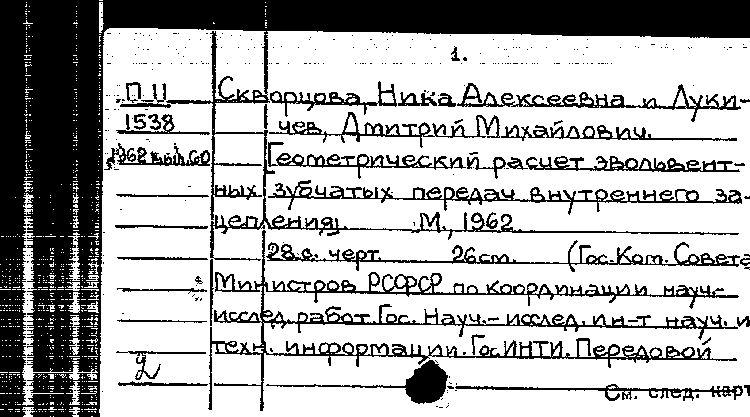 1.
П 11 Скворцова, Ника Алексеевна и Луки-
1538 чев, Дмитрий Михайлович.
1962 вып. 60 Геометрический расчет эвольвент-
ных зубчатых передач внутреннего за-
цепления. М., 1962
28 с. черт. 26 см. (Гос. Ком. Совета
Министров РСФСР по координации науч.-
исслед. работ. Гос. Науч.-исслед. ин-т науч. и
техн. информации. ГосИНТИ. Передовой
2
См. след. карт